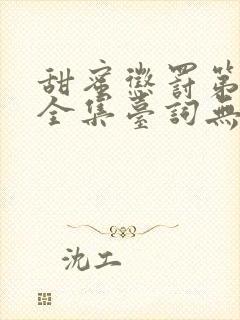 甜蜜懲罰第
全集臺詞無
沈工